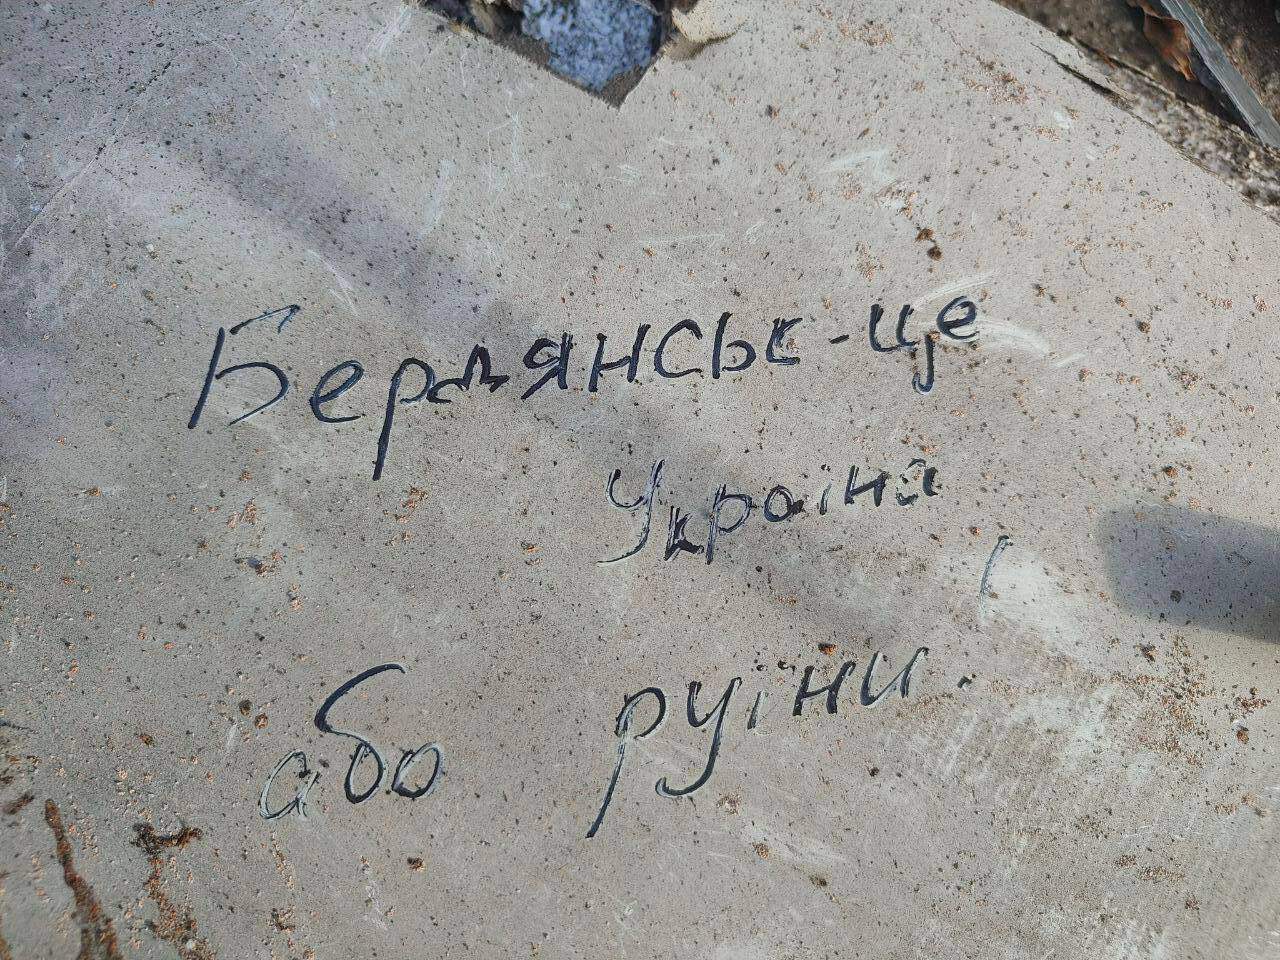 Бердянськ-це
Україна
або руїни.